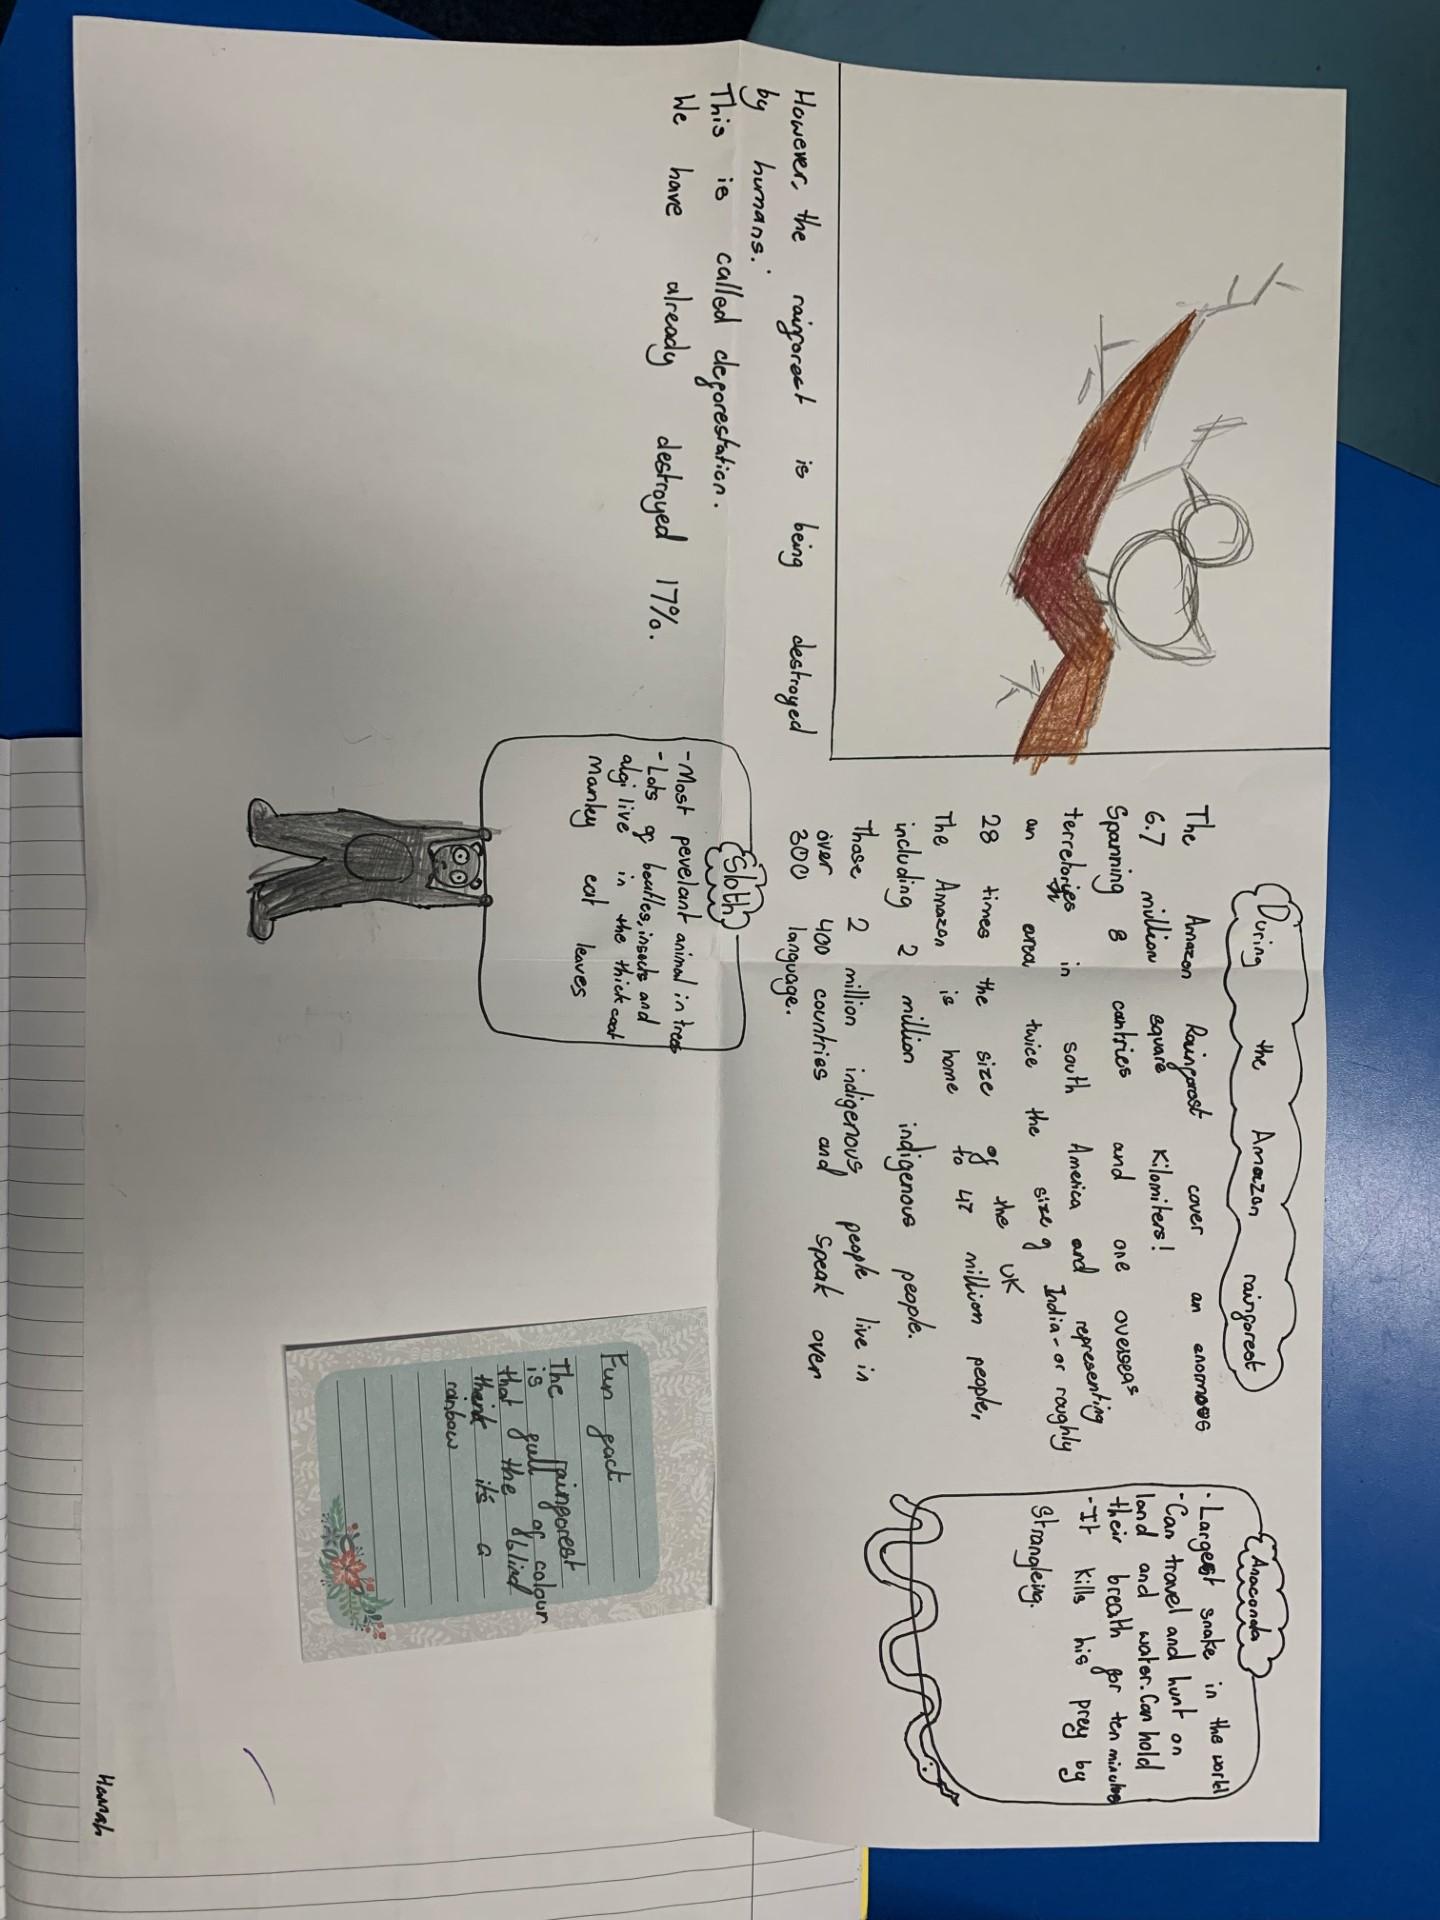 During the Amazon rainforest
The Amazon Rainforost cover an enormoss
6.7 million square Kilomiters!
Spanning 8 contries and one overseas
terretories in south America and representing
an area twice the size of India - or roughly
28 times the size of the UK
The Amazon is home to 47 million people,
including 2 million indigenous people.
Those 2 million indigenous people live in
over 400 countries and speak over
300 language.
Anaconda
- Largest snake in the world
- Can travel and hunt on
land and water. Can hold
their breath for ten minutes
- It kills his prey by
strangleing.
However, the rainforest is being destroyed
by humans.
This is called deforestation.
We have already destroyed 17%.
Sloth
- Most pevelant animal in trees
- Lots of beatles, insects and
algi live in the thick coat
Manley eat leaves
Fun fact
The rainforest
is full of colour
that the blind
think it's a
rainbow
Hannah